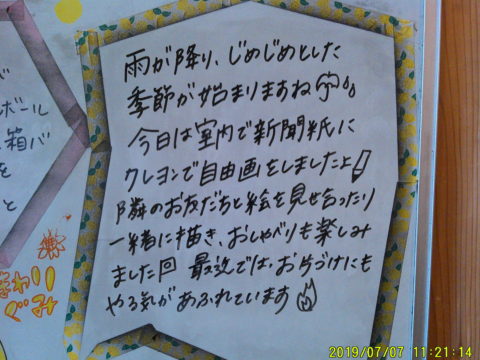 雨が降り、じめじめとした
季節が始まりますね
今日は室内で新聞紙に
クレヨンで自由画をしましたよ
隣のお友だちと絵を見せ合ったり
一緒に描き、おしゃべりも楽しみ
ました 最近では、お片づけにも
やる気があふれています
ボール
箱バ
を
と
まわり
ぐみ
2019/07/07 11:21:14